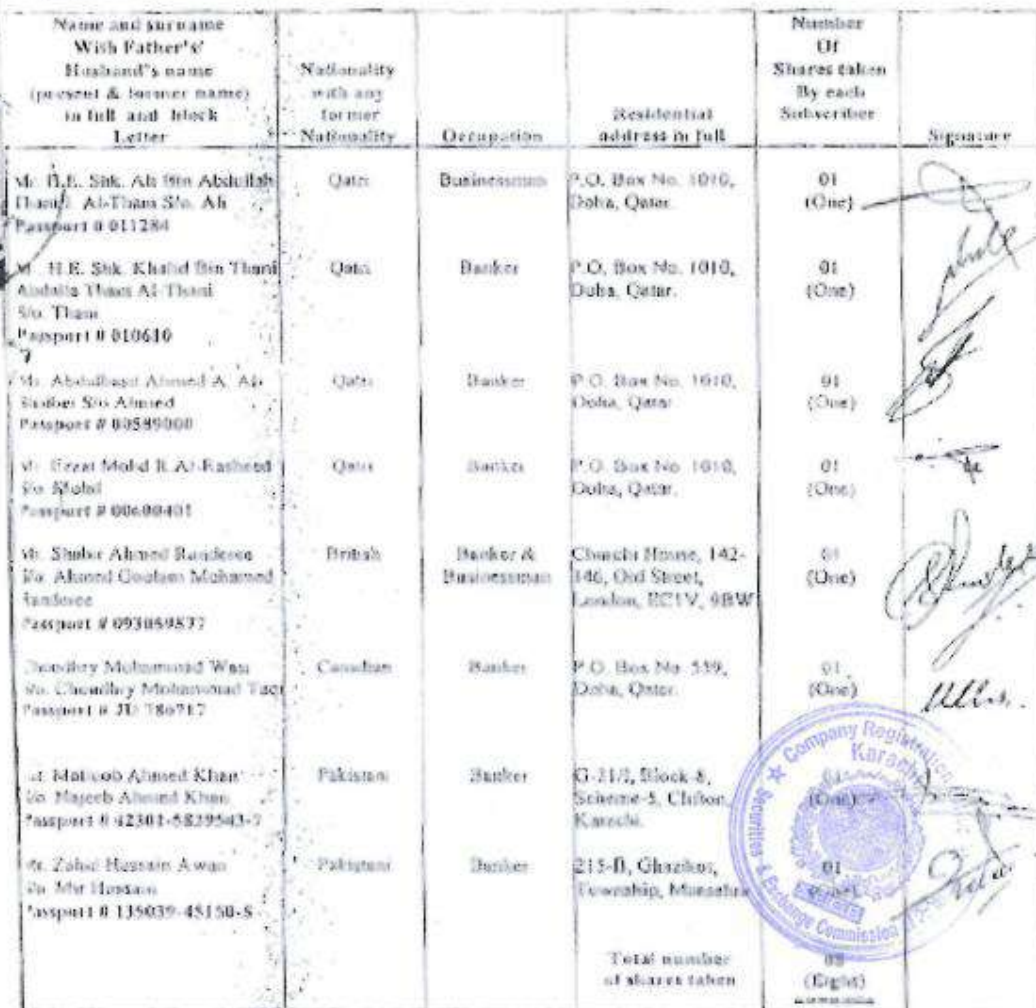 Name and surname
With Father's/
Husband's name
(present & former name)
in full and block
Letter
Nationality
with any
former
Nationality
Occupation
Residential
address in full
Number
Of
Shares taken
By each
Subscriber
Signature
H.E. Shk. Ali Bin Abdullah
Al-Thani S/o. Ali
Passport # 011284
Qatri
Businessman
P.O. Box No. 1010,
Doha, Qatar.
01
(One)
H.E. Shk. Khalid Bin Thani
Abdulla Thani Al-Thani
S/o. Thani
Passport # 010610
Qatri
Banker
P.O. Box No. 1010,
Doha, Qatar.
01
(One)
Mr. Abdulbasit Ahmed A. Al-
S/o Ahmed
Passport # 00589000
Qatri
Banker
P.O. Box No. 1010,
Doha, Qatar
01
(One)
Mohd R. Al-Rasheed
S/o Mohd
Passport # 00600401
Qatri
Banker
P.O. Box No. 1010,
Doha, Qatar.
01
(One)
Mr. Shabir Ahmed Randeree
S/o. Ahmed Goolam Mohamed
Randeree
Passport # 093059837
British
Banker &
Businessman
House, 142-
146, Old Street,
London, EC1V, 9BW
01
(One)
Choudhry Mohammad Wasi
S/o. Choudhry Mohammad
Passport #
Canadian
Banker
P.O. Box No. 559,
Doha, Qatar.
01
(One)
Mr. Matloob Ahmed Khan
S/o. Majeeb Ahmed Khan
Passport # 42301-5839543-7
Pakistani
Banker
Block-8,
Scheme-5, Clifton,
Karachi.
01
(One)
Mr. Zahid Hussain Awan
S/o. Mir Hussain
Passport # 135039-45150-5
Pakistani
Banker
Ghazikot,
Township, Mansehra
01
Company Registration
Karachi
Securities & Exchange Commission
Total number
of shares taken
08
(Eight)